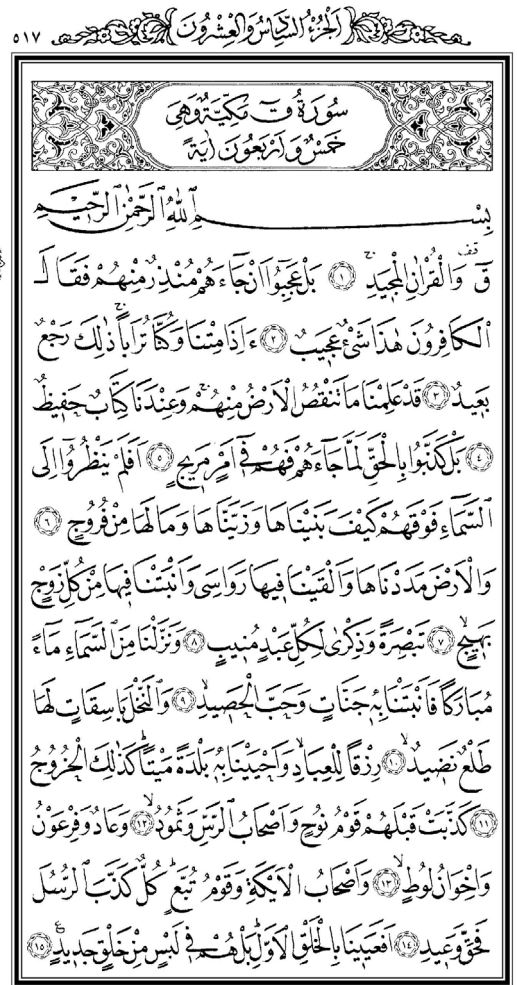 الجزء السادس والعشرون ٥١٧
سُورَةُ قٓ مَكِّيَّةٌ وَهِىَ
خَمْسٌ وَاَرْبَعُونَ اٰيَةً
بِسْمِ اللّٰهِ الرَّحْمٰنِ الرَّحِيمِ
قٓ وَالْقُرْاٰنِ الْمَجِيدِ ﴿١﴾ بَلْ عَجِبُٓوا اَنْ جَٓاءَهُمْ مُنْذِرٌ مِنْهُمْ فَقَالَ
الْكَافِرُونَ هٰذَا شَىْءٌ عَجِيبٌ ﴿٢﴾ ءَاِذَا مِتْنَا وَكُنَّا تُرَابًا ذٰلِكَ رَجْعٌ
بَعِيدٌ ﴿٣﴾ قَدْ عَلِمْنَا مَا تَنْقُصُ الْاَرْضُ مِنْهُمْ وَعِنْدَنَا كِتَابٌ حَفِيظٌ
﴿٤﴾ بَلْ كَذَّبُوا بِالْحَقِّ لَمَّا جَٓاءَهُمْ فَهُمْ فِٓى اَمْرٍ مَرِيجٍ ﴿٥﴾ اَفَلَمْ يَنْظُرُٓوا اِلَى
السَّمَٓاءِ فَوْقَهُمْ كَيْفَ بَنَيْنَاهَا وَزَيَّنَّاهَا وَمَا لَهَا مِنْ فُرُوجٍ ﴿٦﴾
وَالْاَرْضَ مَدَدْنَاهَا وَاَلْقَيْنَا فِيهَا رَوَاسِىَ وَاَنْبَتْنَا فِيهَا مِنْ كُلِّ زَوْجٍ
بَهِيجٍ ﴿٧﴾ تَبْصِرَةً وَذِكْرٰى لِكُلِّ عَبْدٍ مُنِيبٍ ﴿٨﴾ وَنَزَّلْنَا مِنَ السَّمَٓاءِ مَٓاءً
مُبَارَكًا فَاَنْبَتْنَا بِهٖ جَنَّاتٍ وَحَبَّ الْحَصِيدِ ﴿٩﴾ وَالنَّخْلَ بَاسِقَاتٍ لَهَا
طَلْعٌ نَضِيدٌ ﴿١٠﴾ رِزْقًا لِلْعِبَادِ وَاَحْيَيْنَا بِهٖ بَلْدَةً مَيْتًا كَذٰلِكَ الْخُرُوجُ
﴿١١﴾ كَذَّبَتْ قَبْلَهُمْ قَوْمُ نُوحٍ وَاَصْحَابُ الرَّسِّ وَثَمُودُ ﴿١٢﴾ وَعَادٌ وَفِرْعَوْنُ
وَاِخْوَانُ لُوطٍ ﴿١٣﴾ وَاَصْحَابُ الْاَيْكَةِ وَقَوْمُ تُبَّعٍ كُلٌّ كَذَّبَ الرُّسُلَ
فَحَقَّ وَعِيدِ ﴿١٤﴾ اَفَعَيِينَا بِالْخَلْقِ الْاَوَّلِ بَلْ هُمْ فِى لَبْسٍ مِنْ خَلْقٍ جَدِيدٍ ﴿١٥﴾